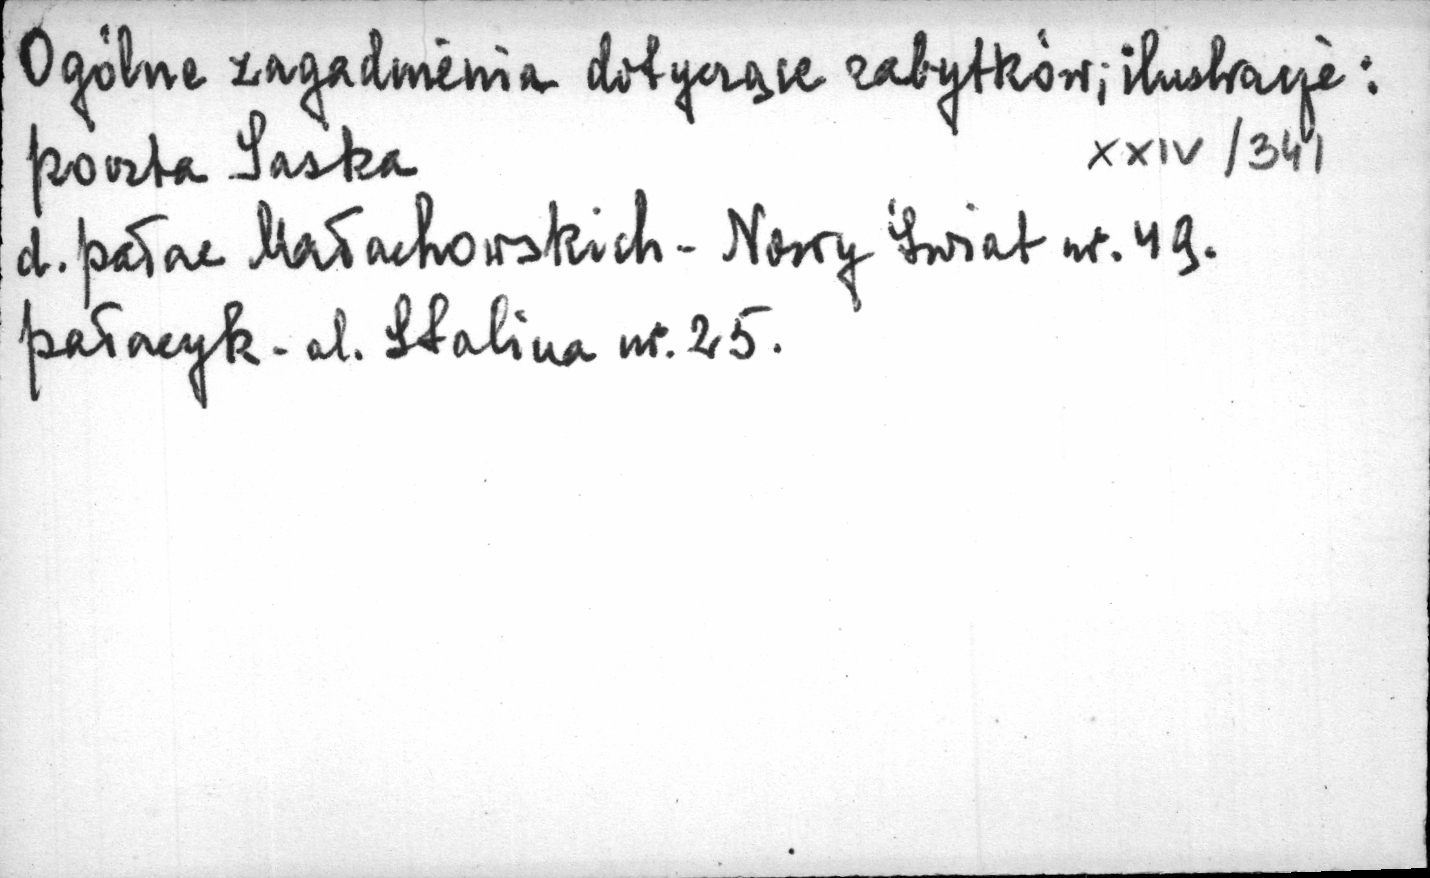 Ogólne zagadnienia dotyczące zabytków; ilustracje:
poczta Saska XXIV/341
d. pałac Małachowskich - Nowy Świat nr. 49.
pałacyk - al. Stalina nr. 25.